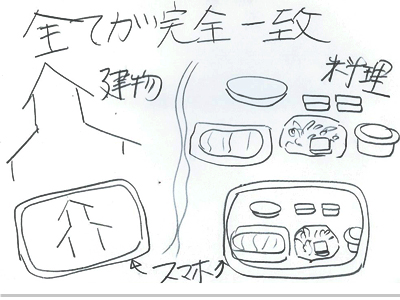 全てが完全一致
建物
料理
スマホ